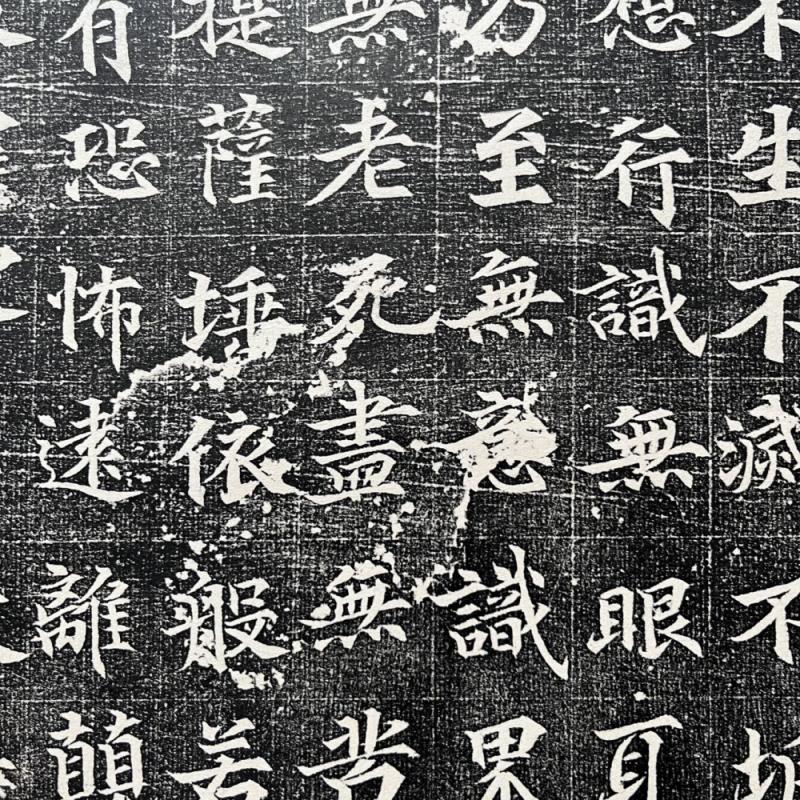 不生不滅不垢
想行識無眼耳
乃至無意識界
無老死盡無苦
提薩埵依般若
有恐怖遠離顛